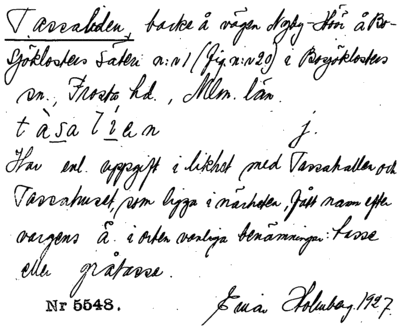 Tassaliden, backe å vägen Nyby-Hör å Bo-
sjöklosters Säteri n:r 1 (fig. n:r 20) i Bosjöklosters
sn., Frosta hd., Mlm. län.
tàsalíen j.
Har enl. uppgift i likhet med Tassahallen och
Tassahuset, som ligga i närheten, fått namn efter
vargens å i orten vanliga benämningar: tasse
eller gråtasse.
Nr 5548. Ewa Holmberg. 1927.